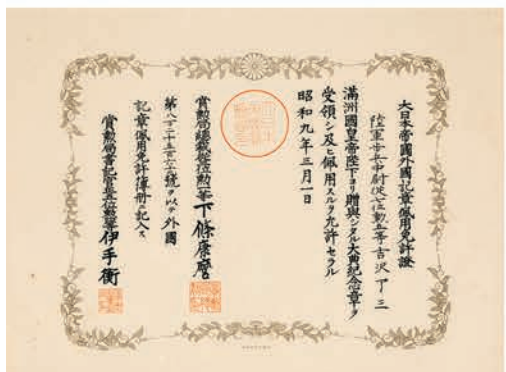 大日本帝國外國記章佩用免許證
陸軍歩兵中尉従七位勲五等吉沢
満洲國皇帝陛下ヨリ贈與シタル大典紀念章ヲ
受領シ及ヒ佩用スルヲ允許セラル
昭和九年三月一日
賞勲局總裁従位勲等下條康麿
第八百二十五百号ヲ以テ外國
記章佩用免許簿冊ニ記入ス
賞勲局書記官位勲等伊手衡